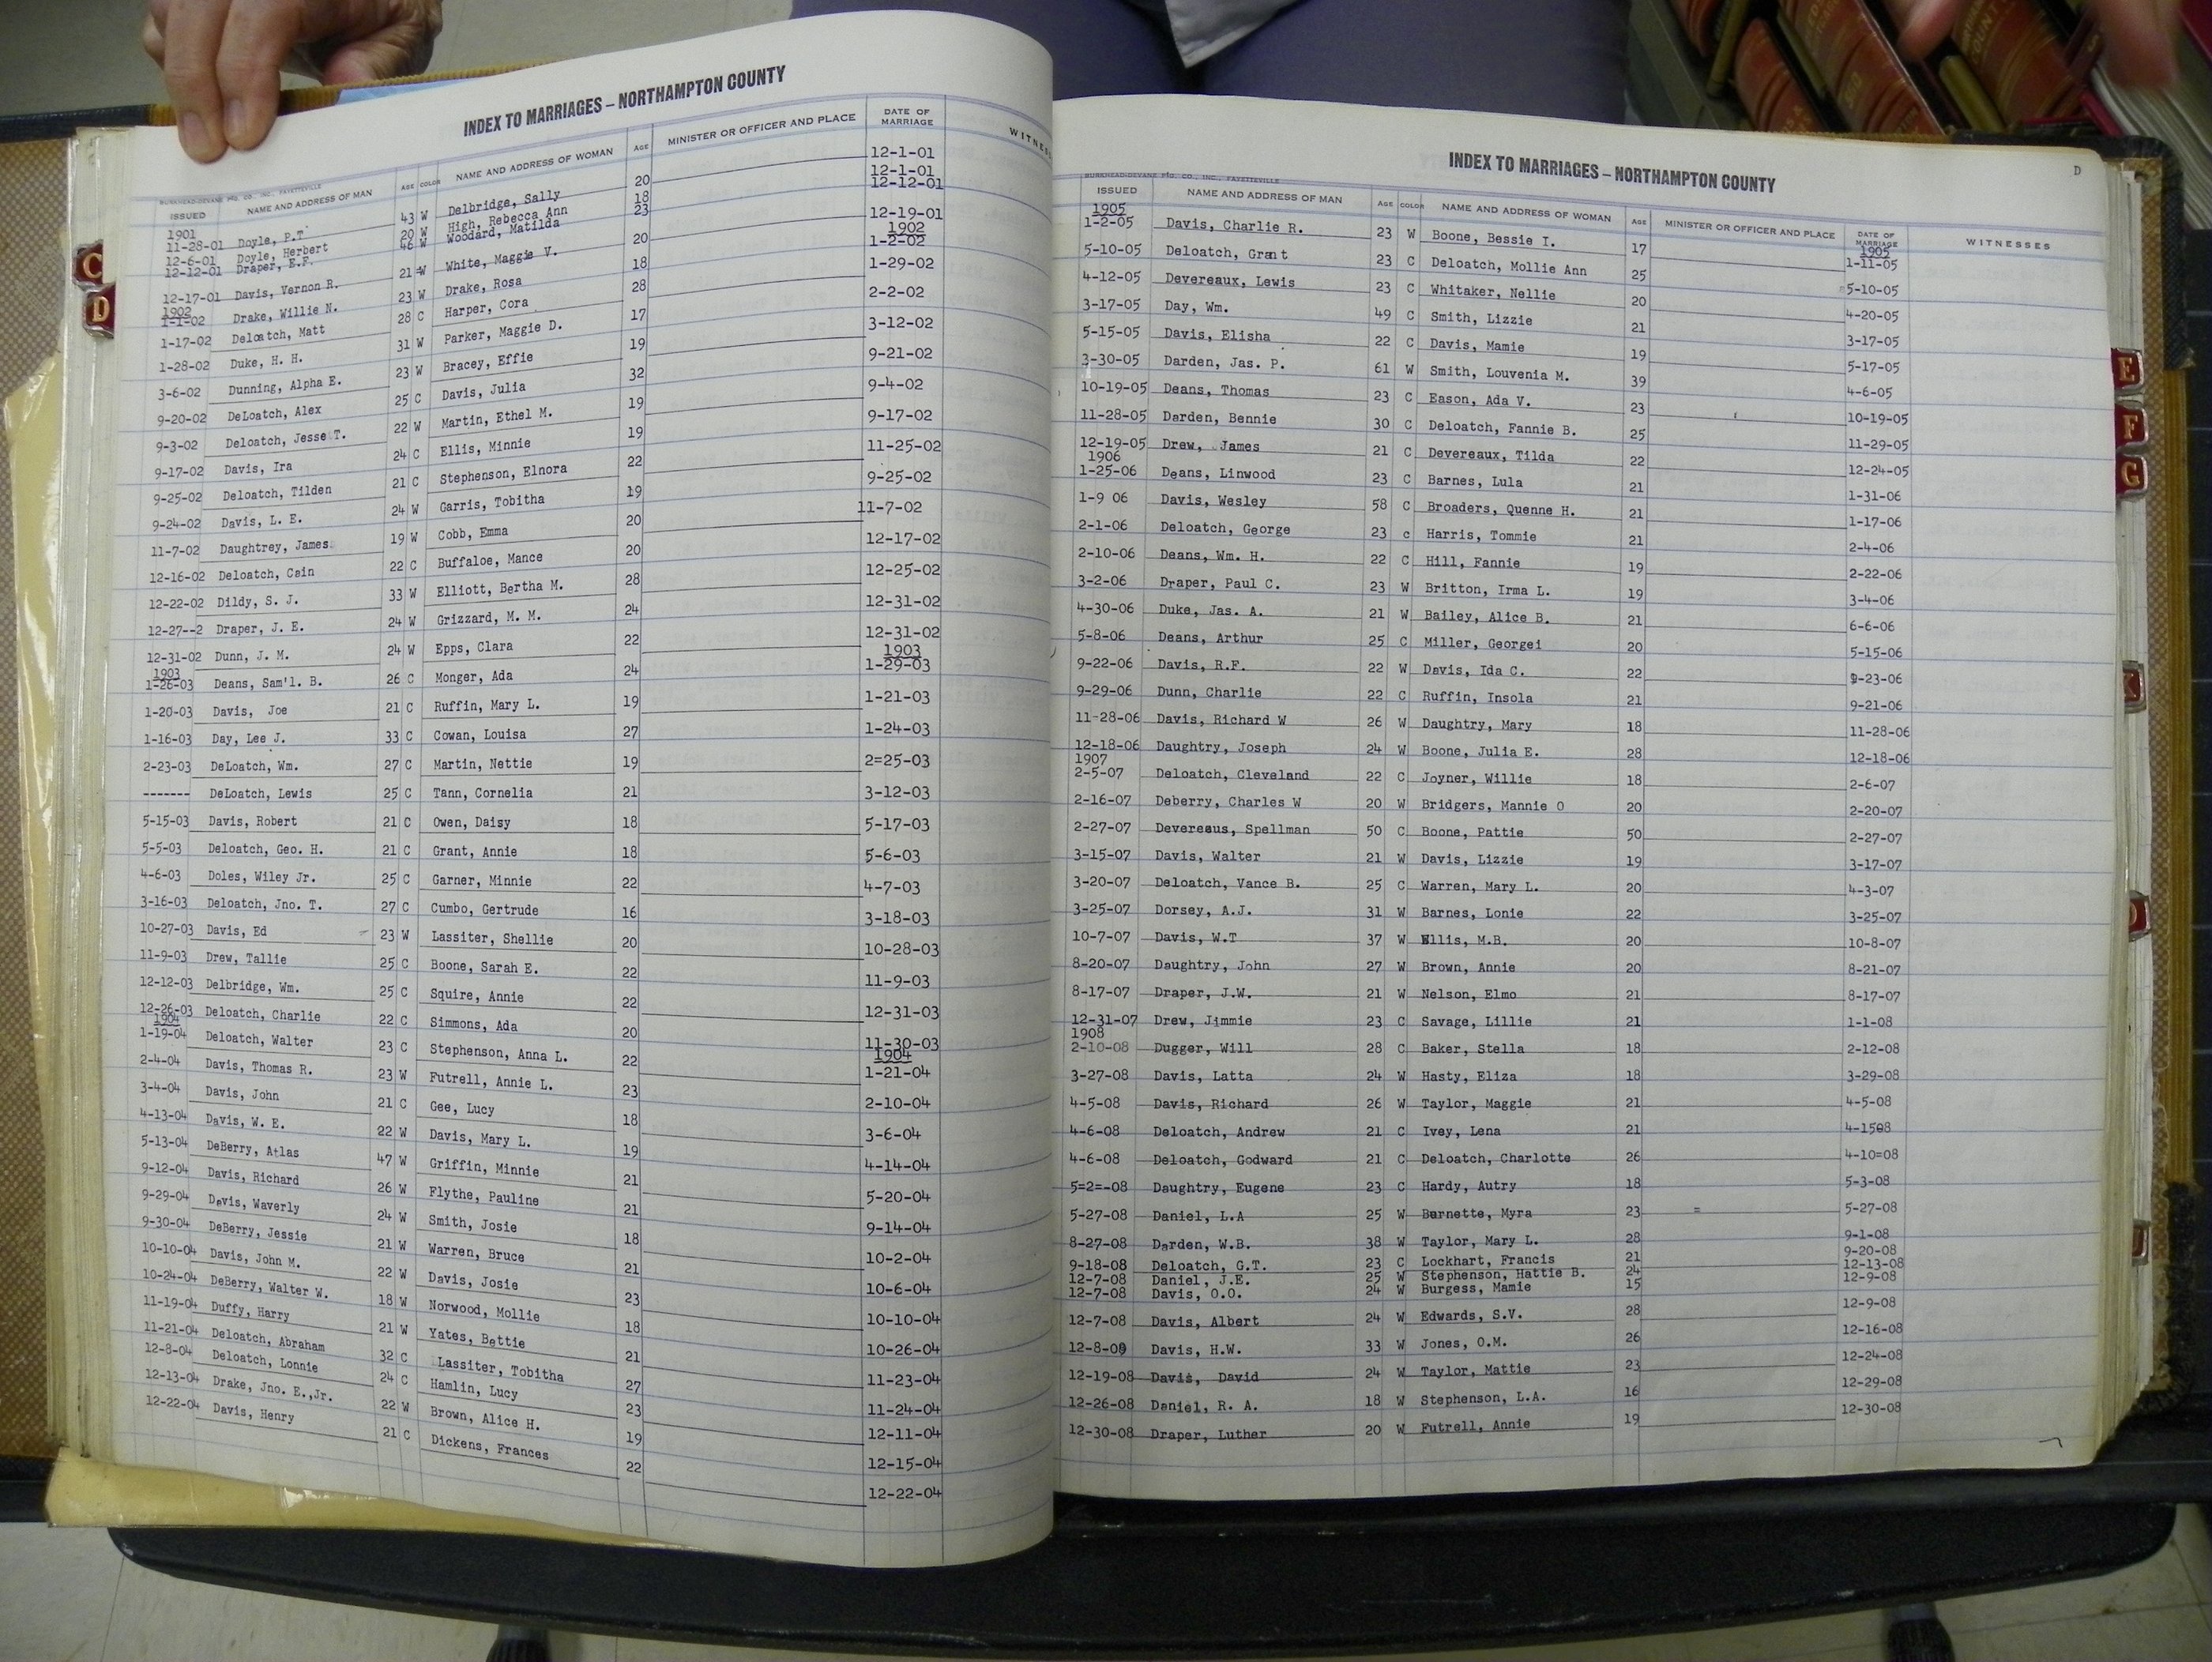 INDEX TO MARRIAGES – NORTHAMPTON COUNTY
BURKHEAD-DEVANE PTG. CO., INC., FAYETTEVILLE
ISSUED NAME AND ADDRESS OF MAN AGE COLOR NAME AND ADDRESS OF WOMAN AGE MINISTER OR OFFICER AND PLACE DATE OF MARRIAGE
1901
11-28-01 Doyle, P.T 43 W Delbridge, Sally 20 12-1-01
12-6-01 Doyle, Herbert 20 W High, Rebecca Ann 18 12-1-01
12-12-01 Draper, E.F. 46 W Woodard, Matilda 23 12-12-01
12-17-01 Davis, Vernon R. 21 W White, Maggie V. 20 12-19-01
1902 1902
1-1-02 Drake, Willie N. 23 W Drake, Rosa 18 1-2-02
1-17-02 Deloatch, Matt 28 C Harper, Cora 28 1-29-02
1-28-02 Duke, H. H. 31 W Parker, Maggie D. 17 2-2-02
3-6-02 Dunning, Alpha E. 23 W Bracey, Effie 19 3-12-02
9-20-02 DeLoatch, Alex 25 C Davis, Julia 32 9-21-02
9-3-02 Deloatch, Jesse T. 22 W Martin, Ethel M. 19 9-4-02
9-17-02 Davis, Ira 24 C Ellis, Minnie 19 9-17-02
9-25-02 Deloatch, Tilden 21 C Stephenson, Elnora 22 11-25-02
9-24-02 Davis, L. E. 24 W Garris, Tobitha 19 9-25-02
11-7-02 Daughtrey, James 19 W Cobb, Emma 20 11-7-02
12-16-02 Deloatch, Cain 22 C Buffaloe, Mance 20 12-17-02
12-22-02 Dildy, S. J. 33 W Elliott, Bertha M. 28 12-25-02
12-27--2 Draper, J. E. 24 W Grizzard, M. M. 24 12-31-02
12-31-02 Dunn, J. M. 24 W Epps, Clara 22 12-31-02
1903 1903
1-26-03 Deans, Sam'l. B. 26 C Monger, Ada 24 1-29-03
1-20-03 Davis, Joe 21 C Ruffin, Mary L. 19 1-21-03
1-16-03 Day, Lee J. 33 C Cowan, Louisa 27 1-24-03
2-23-03 DeLoatch, Wm. 27 C Martin, Nettie 19 2=25-03
------- DeLoatch, Lewis 25 C Tann, Cornelia 21 3-12-03
5-15-03 Davis, Robert 21 C Owen, Daisy 18 5-17-03
5-5-03 Deloatch, Geo. H. 21 C Grant, Annie 18 5-6-03
4-6-03 Doles, Wiley Jr. 25 C Garner, Minnie 22 4-7-03
3-16-03 Deloatch, Jno. T. 27 C Cumbo, Gertrude 16 3-18-03
10-27-03 Davis, Ed 23 W Lassiter, Shellie 20 10-28-03
11-9-03 Drew, Tallie 25 C Boone, Sarah E. 22 11-9-03
12-12-03 Delbridge, Wm. 25 C Squire, Annie 22 12-31-03
12-26-03 Deloatch, Charlie 22 C Simmons, Ada 20 11-30-03
1904 1904
1-19-04 Deloatch, Walter 23 C Stephenson, Anna L. 22 1-21-04
2-4-04 Davis, Thomas R. 23 W Futrell, Annie L. 23 2-10-04
3-4-04 Davis, John 21 C Gee, Lucy 18 3-6-04
4-13-04 Davis, W. E. 22 W Davis, Mary L. 19 4-14-04
5-13-04 DeBerry, Atlas 47 W Griffin, Minnie 21 5-20-04
9-12-04 Davis, Richard 26 W Flythe, Pauline 21 9-14-04
9-29-04 Davis, Waverly 24 W Smith, Josie 18 10-2-04
9-30-04 DeBerry, Jessie 21 W Warren, Bruce 21 10-6-04
10-10-04 Davis, John M. 22 W Davis, Josie 23 10-10-04
10-24-04 DeBerry, Walter W. 18 W Norwood, Mollie 18 10-26-04
11-19-04 Duffy, Harry 21 W Yates, Bettie 21 11-23-04
11-21-04 Deloatch, Abraham 32 C Lassiter, Tobitha 27 11-24-04
12-8-04 Deloatch, Lonnie 24 C Hamlin, Lucy 23 12-11-04
12-13-04 Drake, Jno. E.,Jr. 22 W Brown, Alice H. 19 12-15-04
12-22-04 Davis, Henry 21 C Dickens, Frances 22 12-22-04
INDEX TO MARRIAGES – NORTHAMPTON COUNTY
D
BURKHEAD-DEVANE PTG. CO., INC., FAYETTEVILLE
ISSUED NAME AND ADDRESS OF MAN AGE COLOR NAME AND ADDRESS OF WOMAN AGE MINISTER OR OFFICER AND PLACE DATE OF MARRIAGE WITNESSES
1905 1905
1-2-05 Davis, Charlie R. 23 W Boone, Bessie I. 17 1-11-05
5-10-05 Deloatch, Grant 23 C Deloatch, Mollie Ann 25 5-10-05
4-12-05 Devereaux, Lewis 23 C Whitaker, Nellie 20 4-20-05
3-17-05 Day, Wm. 49 C Smith, Lizzie 21 3-17-05
5-15-05 Davis, Elisha 22 C Davis, Mamie 19 5-17-05
3-30-05 Darden, Jas. P. 61 W Smith, Louvenia M. 39 4-6-05
10-19-05 Deans, Thomas 23 C Eason, Ada V. 23 10-19-05
11-28-05 Darden, Bennie 30 C Deloatch, Fannie B. 25 11-29-05
12-19-05 Drew, James 21 C Devereaux, Tilda 22 12-24-05
1906
1-25-06 Deans, Linwood 23 C Barnes, Lula 21 1-31-06
1-9 06 Davis, Wesley 58 C Broaders, Quenne H. 21 1-17-06
2-1-06 Deloatch, George 23 c Harris, Tommie 21 2-4-06
2-10-06 Deans, Wm. H. 22 C Hill, Fannie 19 2-22-06
3-2-06 Draper, Paul C. 23 W Britton, Irma L. 19 3-4-06
4-30-06 Duke, Jas. A. 21 W Bailey, Alice B. 21 6-6-06
5-8-06 Deans, Arthur 25 C Miller, Georgei 20 5-15-06
9-22-06 Davis, R.F. 22 W Davis, Ida C. 22 9-23-06
9-29-06 Dunn, Charlie 22 C Ruffin, Insola 21 9-21-06
11-28-06 Davis, Richard W 26 W Daughtry, Mary 18 11-28-06
12-18-06 Daughtry, Joseph 24 W Boone, Julia E. 28 12-18-06
1907
2-5-07 Deloatch, Cleveland 22 C Joyner, Willie 18 2-6-07
2-16-07 Deberry, Charles W 20 W Bridgers, Mannie O 20 2-20-07
2-27-07 Devereaus, Spellman 50 C Boone, Pattie 50 2-27-07
3-15-07 Davis, Walter 21 W Davis, Lizzie 19 3-17-07
3-20-07 Deloatch, Vance B. 25 C Warren, Mary L. 20 4-3-07
3-25-07 Dorsey, A.J. 31 W Barnes, Lonie 22 3-25-07
10-7-07 Davis, W.T 37 W Ellis, M.B. 20 10-8-07
8-20-07 Daughtry, John 27 W Brown, Annie 20 8-21-07
8-17-07 Draper, J.W. 21 W Nelson, Elmo 21 8-17-07
12-31-07 Drew, Jimmie 23 C Savage, Lillie 21 1-1-08
1908
2-10-08 Dugger, Will 28 C Baker, Stella 18 2-12-08
3-27-08 Davis, Latta 24 W Hasty, Eliza 18 3-29-08
4-5-08 Davis, Richard 26 W Taylor, Maggie 21 4-5-08
4-6-08 Deloatch, Andrew 21 C Ivey, Lena 21 4-1508
4-6-08 Deloatch, Godward 21 C Deloatch, Charlotte 26 4-10=08
5=2=-08 Daughtry, Eugene 23 C Hardy, Autry 18 5-3-08
5-27-08 Daniel, L.A 25 W Barnette, Myra 23 = 5-27-08
8-27-08 Darden, W.B. 38 W Taylor, Mary L. 28 9-1-08
9-18-08 Deloatch, G.T. 23 C Lockhart, Francis 21 9-20-08
12-7-08 Daniel, J.E. 25 W Stephenson, Hattie B. 24 12-13-08
12-7-08 Davis, O.O. 24 W Burgess, Mamie 15 12-9-08
12-7-08 Davis, Albert 24 W Edwards, S.V. 28 12-9-08
12-8-09 Davis, H.W. 33 W Jones, O.M. 26 12-16-08
12-19-08 Davis, David 24 W Taylor, Mattie 23 12-24-08
12-26-08 Daniel, R. A. 18 W Stephenson, L.A. 16 12-29-08
12-30-08 Draper, Luther 20 W Futrell, Annie 19 12-30-08
C
D
E
F
G
K